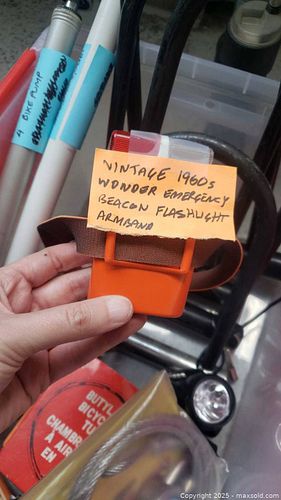 4 BIKE PUMP
VINTAGE 1960s
WONDER EMERGENCY
BEACON FLASHLIGHT
ARMBAND
BUTYL
BICYCL
TU
CHAMBR
À AIR
EN
Copyright © 2025 - maxsold.com